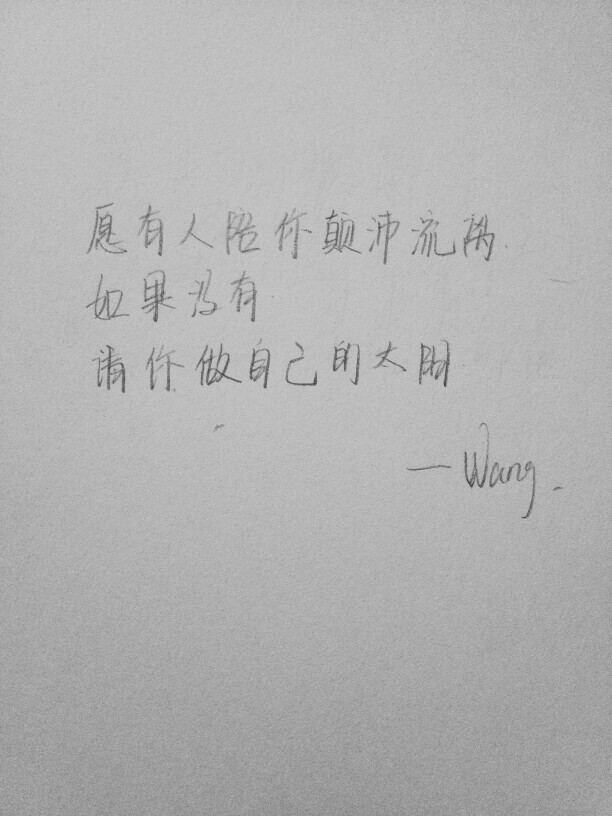 愿有人陪你颠沛流离.
如果没有.
请你做自己的太阳.
— Wang.